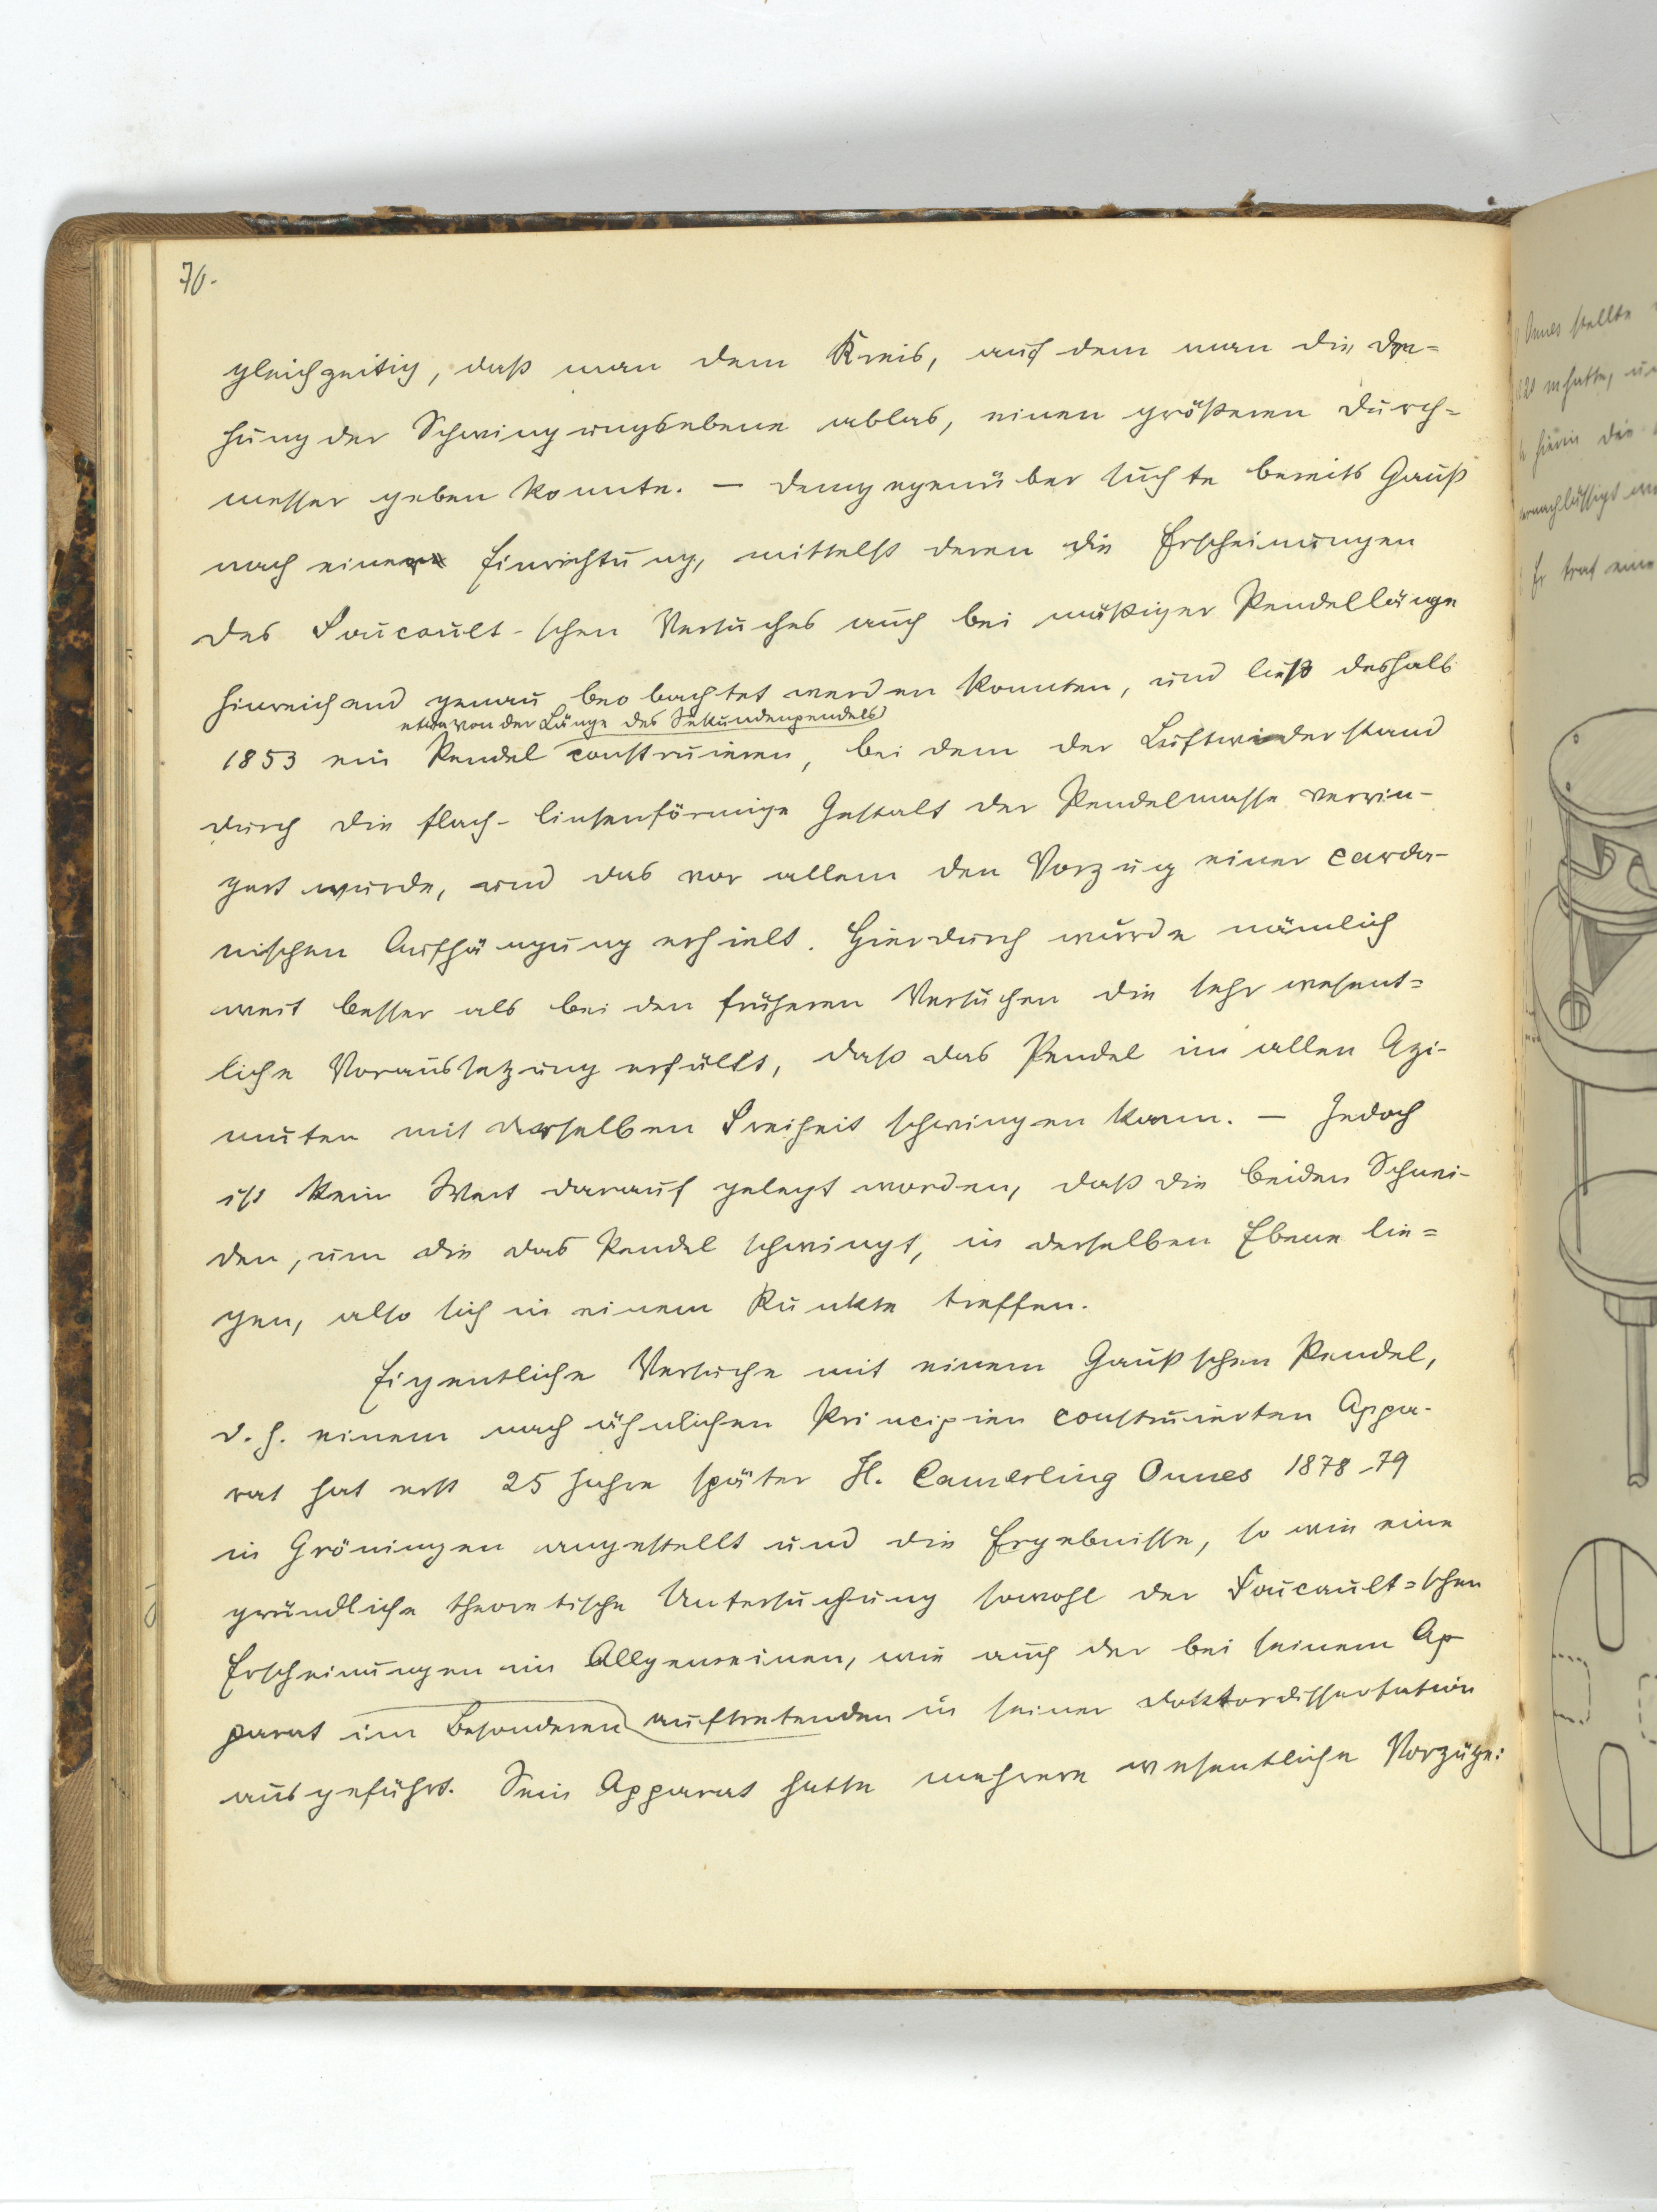 70.
gleichzeitig, daß man dem Kreis, auf dem man die Dre-
hung der Schwingungsebene ablas, einen größeren Durch-
messer geben konnte. — Demgegenüber suchte bereits Gauß
nach einer Einrichtung, mittelst deren die Erscheinungen
des Foucault-schen Versuches auch bei mäßiger Pendellänge
hinreichend genau beobachtet werden konnten, und ließ deshalb
etwa von der Länge des Sekundenpendels
1853 ein Pendel construieren, bei dem der Luftwiderstand
durch die flach-linsenförmige Gestalt der Pendelmasse verrin-
gert wurde, und das vor allem den Vorzug einer carda-
nischen Aufhängung erhielt. Hierdurch wurde nämlich
weit besser als bei den früheren Versuchen die sehr wesent-
liche Voraussetzung erfüllt, daß das Pendel in allen Azi-
muten mit derselben Freiheit schwingen kann. — Jedoch
ist kein Wert darauf gelegt worden, daß die beiden Schnei-
den, um die das Pendel schwingt, in derselben Ebene lie-
gen, also sich in einem Punkte treffen.
Eigentliche Versuche mit einem Gaußschen Pendel,
d. h. einem nach ähnlichen Principien construierten Appa-
rat hat erst 25 Jahre später H. Camerling Onnes 1878-79
in Gröningen angestellt und die Ergebnisse, so wie eine
gründliche theoretische Untersuchung sowohl der Foucault-schen
Erscheinungen im Allgemeinen, wie auch der bei seinem Ap
parat im Besonderen auftretenden in seiner Doktordissertation
ausgeführt. Sein Apparat hatte mehrere wesentliche Vorzüge:
Onnes stellte
hatte,
hierin die
Er traf eine